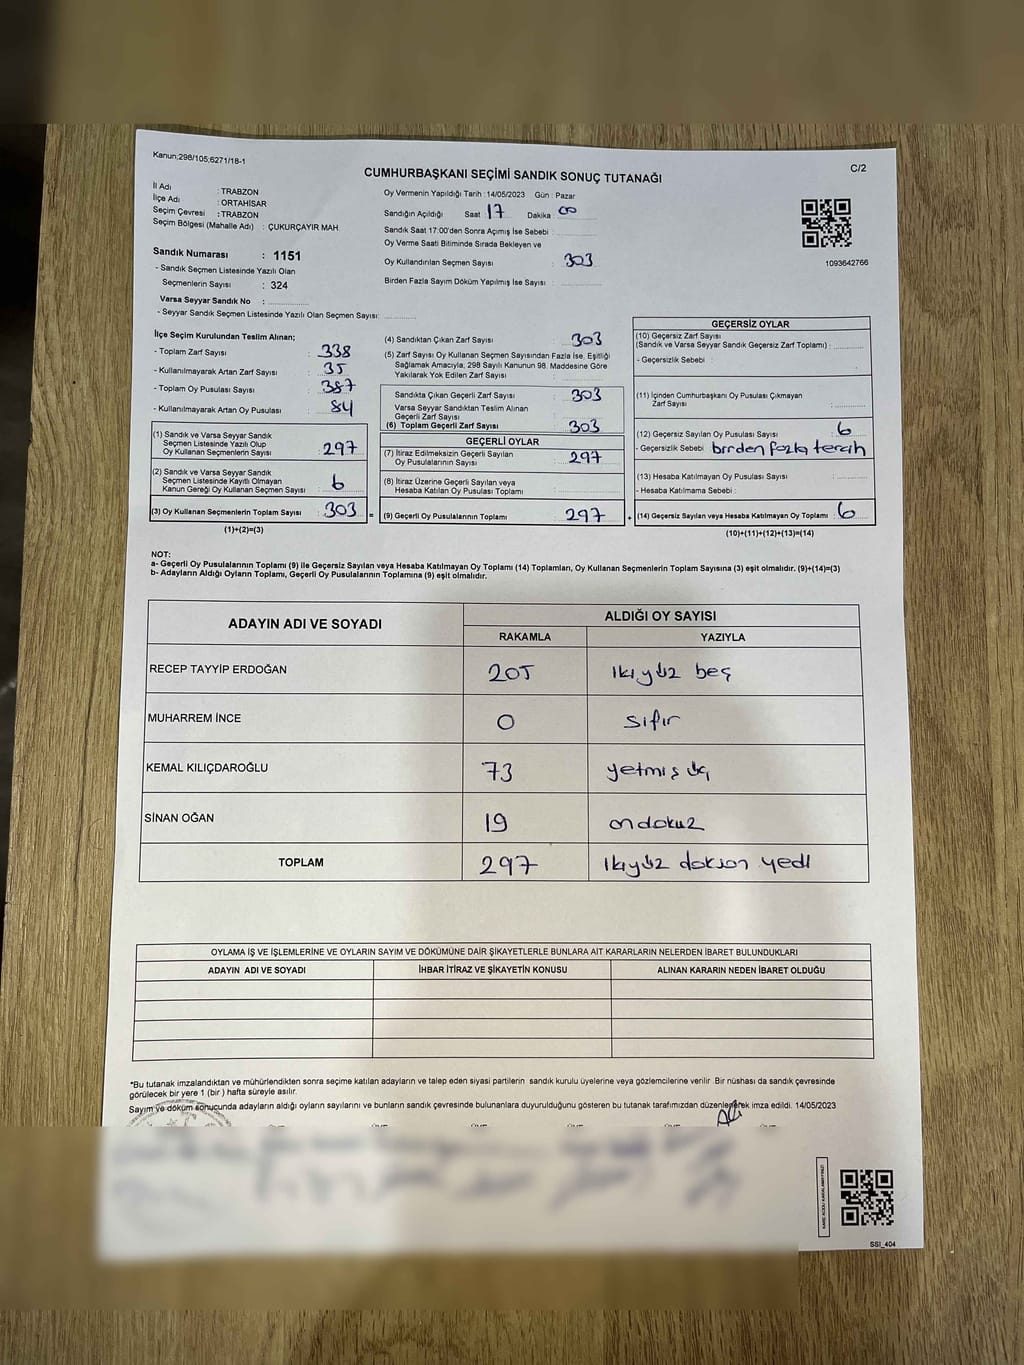 Kanun;298/105;6271/18-1
C/2
CUMHURBAŞKANI SEÇİMİ SANDIK SONUÇ TUTANAĞI
İl Adı : TRABZON
İlçe Adı : ORTAHİSAR
Seçim Çevresi : TRABZON
Seçim Bölgesi (Mahalle Adı) : ÇUKURÇAYIR MAH.
Sandık Numarası : 1151
- Sandık Seçmen Listesinde Yazılı Olan
Seçmenlerin Sayısı : 324
Varsa Seyyar Sandık No :
- Seyyar Sandık Seçmen Listesinde Yazılı Olan Seçmen Sayısı:
Oy Vermenin Yapıldığı Tarih : 14/05/2023 Gün : Pazar
Sandığın Açıldığı Saat 17 Dakika 00
Sandık Saat 17:00'den Sonra Açımış İse Sebebi :
Oy Verme Saati Bitiminde Sırada Bekleyen ve
Oy Kullandırılan Seçmen Sayısı : 303
Birden Fazla Sayım Döküm Yapılmış İse Sayısı :
1093642766
İlçe Seçim Kurulundan Teslim Alınan;
- Toplam Zarf Sayısı : 338
- Kullanılmayarak Artan Zarf Sayısı : 35
- Toplam Oy Pusulası Sayısı : 387
- Kullanılmayarak Artan Oy Pusulası : 84
(1) Sandık ve Varsa Seyyar Sandık
Seçmen Listesinde Yazılı Olup
Oy Kullanan Seçmenlerin Sayısı : 297
(2) Sandık ve Varsa Seyyar Sandık
Seçmen Listesinde Kayıtlı Olmayan
Kanun Gereği Oy Kullanan Seçmen Sayısı : 6
(3) Oy Kullanan Seçmenlerin Toplam Sayısı : 303 =
(1)+(2)=(3)
(4) Sandıktan Çıkan Zarf Sayısı : 303
(5) Zarf Sayısı Oy Kullanan Seçmen Sayısından Fazla İse, Eşitliği
Sağlamak Amacıyla, 298 Sayılı Kanunun 98. Maddesine Göre
Yakılarak Yok Edilen Zarf Sayısı :
Sandıkta Çıkan Geçerli Zarf Sayısı : 303
Varsa Seyyar Sandıktan Teslim Alınan
Geçerli Zarf Sayısı :
(6) Toplam Geçerli Zarf Sayısı : 303
GEÇERLİ OYLAR
(7) İtiraz Edilmeksizin Geçerli Sayılan
Oy Pusulalarının Sayısı : 297
(8) İtiraz Üzerine Geçerli Sayılan veya
Hesaba Katılan Oy Pusulası Toplamı :
(9) Geçerli Oy Pusulalarının Toplamı : 297 +
GEÇERSİZ OYLAR
(10) Geçersiz Zarf Sayısı
(Sandık ve Varsa Seyyar Sandık Geçersiz Zarf Toplamı) :
- Geçersizlik Sebebi :
(11) İçinden Cumhurbaşkanı Oy Pusulası Çıkmayan
Zarf Sayısı :
(12) Geçersiz Sayılan Oy Pusulası Sayısı : 6
- Geçersizlik Sebebi : birden fazla tercih
(13) Hesaba Katılmayan Oy Pusulası Sayısı :
- Hesaba Katılmama Sebebi :
(14) Geçersiz Sayılan veya Hesaba Katılmayan Oy Toplamı : 6
(10)+(11)+(12)+(13)=(14)
NOT:
a- Geçerli Oy Pusulalarının Toplamı (9) ile Geçersiz Sayılan veya Hesaba Katılmayan Oy Toplamı (14) Toplamları, Oy Kullanan Seçmenlerin Toplam Sayısına (3) eşit olmalıdır. (9)+(14)=(3)
b- Adayların Aldığı Oyların Toplamı, Geçerli Oy Pusulalarının Toplamına (9) eşit olmalıdır.
ADAYIN ADI VE SOYADI ALDIĞI OY SAYISI
RAKAMLA YAZIYLA
RECEP TAYYİP ERDOĞAN 205 ikiyüz beş
MUHARREM İNCE 0 sıfır
KEMAL KILIÇDAROĞLU 73 yetmiş üç
SİNAN OĞAN 19 ondokuz
TOPLAM 297 ikiyüz doksan yedi
OYLAMA İŞ VE İŞLEMLERİNE VE OYLARIN SAYIM VE DÖKÜMÜNE DAİR ŞİKAYETLERLE BUNLARA AİT KARARLARIN NELERDEN İBARET BULUNDUKLARI
ADAYIN ADI VE SOYADI İHBAR İTİRAZ VE ŞİKAYETİN KONUSU ALINAN KARARIN NEDEN İBARET OLDUĞU
*Bu tutanak imzalandıktan ve mühürlendikten sonra seçime katılan adayların ve talep eden siyasi partilerin sandık kurulu üyelerine veya gözlemcilerine verilir. Bir nüshası da sandık çevresinde
görülecek bir yere 1 (bir) hafta süreyle asılır.
Sayım ve döküm sonucunda adayların aldığı oyların sayılarını ve bunların sandık çevresinde bulunanlara duyurulduğunu gösteren bu tutanak tarafımızdan düzenlenerek imza edildi. 14/05/2023
SSI_404